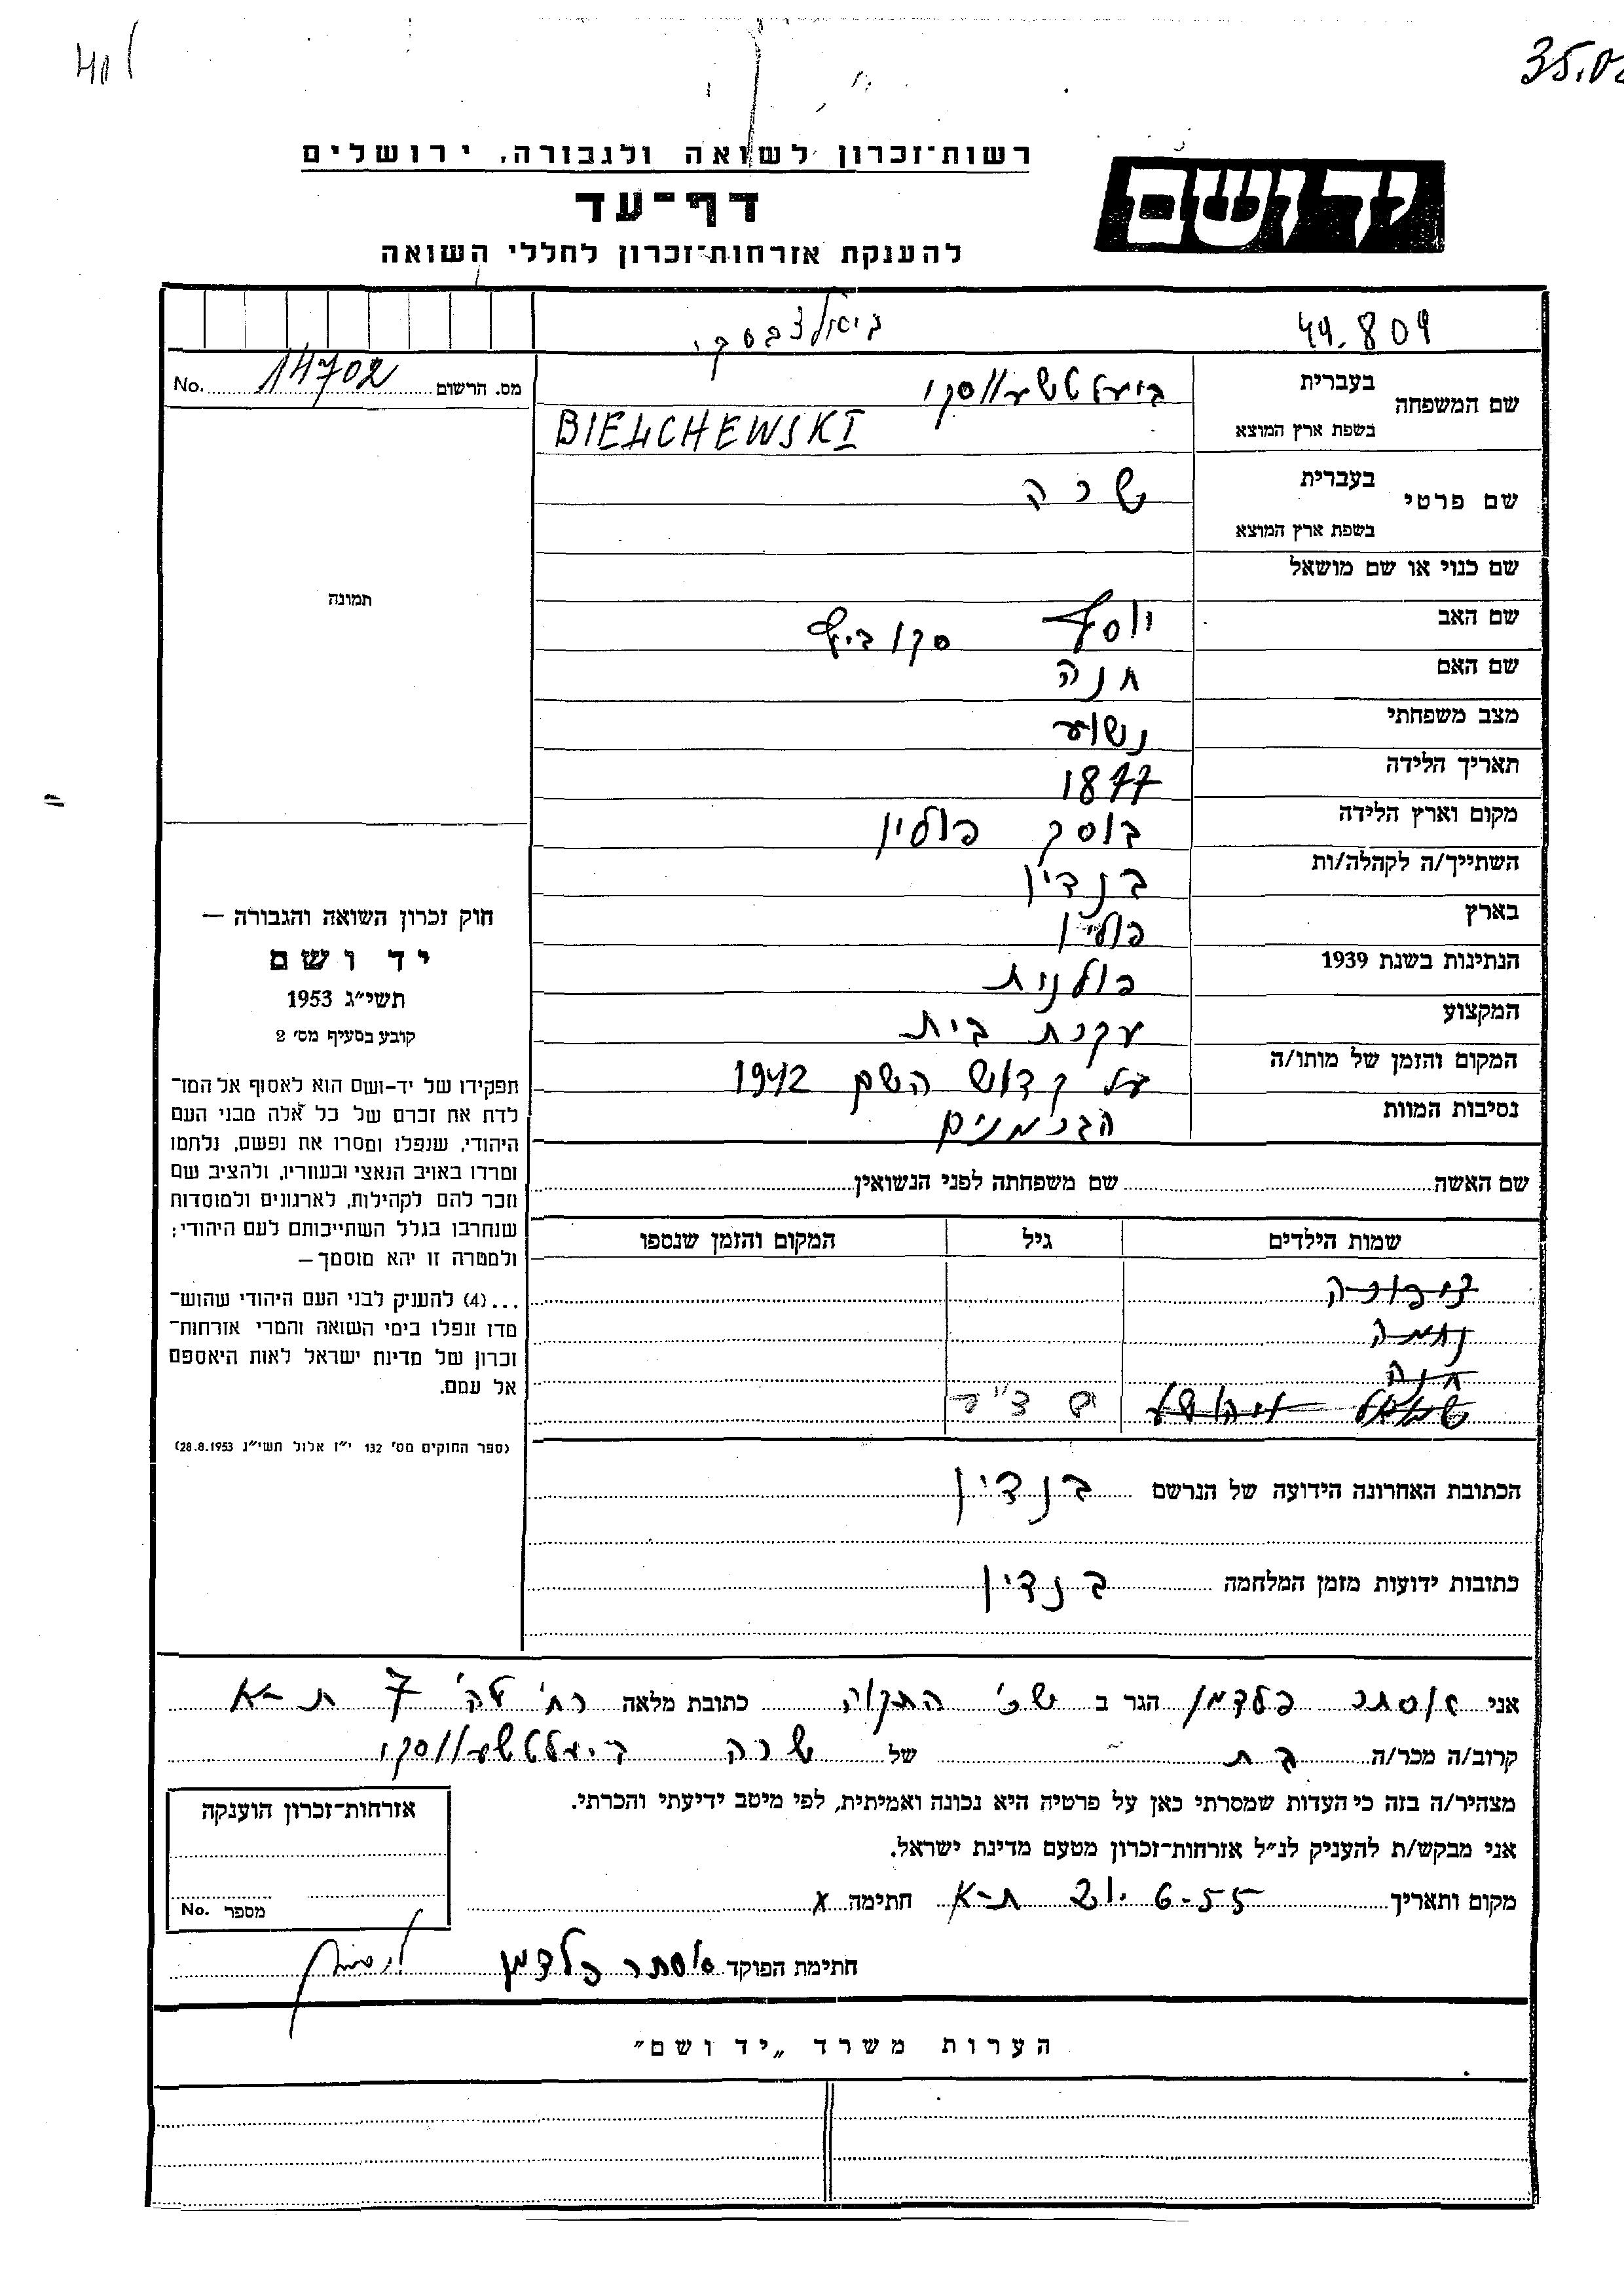 35.0
רשות־זכרון לשואה ולגבורה, ירושלים
יד ושם
דף־עד
להענקת אזרחות־זכרון לחללי השואה
49.809
ביאלצבסקי
מס. הרשום 14702 No.
שם המשפחה בעברית ביעלטשעווסקי
בשפת ארץ המוצא BIELCHEWSKI
שם פרטי בעברית שרה
בשפת ארץ המוצא
שם כנוי או שם מושאל
תמונה
שם האב יוסף
שם האם חנה
מצב משפחתי נשוי
תאריך הלידה 1877
מקום וארץ הלידה בוסק פולין
השתייך/ה לקהלה/ות בנדין
בארץ פולין
הנתינות בשנת 1939 פולנית
המקצוע עקרת בית
המקום והזמן של מותו/ה על קדוש השם 1942
נסיבות המוות הגרמנים
חוק זכרון השואה והגבורה —
יד ושם
תשי״ג 1953
קובע בסעיף מס׳ 2
תפקידו של יד-ושם הוא לאסוף אל המו־
לדת את זכרם של כל אלה מבני העם
היהודי, שנפלו ומסרו את נפשם, נלחמו
ומרדו באויב הנאצי ובעוזריו, ולהציב שם
וזכר להם לקהילות, לארגונים ולמוסדות
שנחרבו בגלל השתייכותם לעם היהודי;
ולמטרה זו יהא מוסמך —
...(4) להעניק לבני העם היהודי שהוש־
מדו ונפלו בימי השואה והמרי אזרחות־
זכרון של מדינת ישראל לאות היאספם
אל עמם.
(ספר החוקים מס׳ 132 י״ז אלול תשי״ג 28.8.1953)
שם האשה שם משפחתה לפני הנשואין
שמות הילדים גיל המקום והזמן שנספו
צפורה
נחמה
חנה
הכתובת האחרונה הידועה של הנרשם בנדין
כתובות ידועות מזמן המלחמה בנדין
אני אסתר פלדמן הגר ב שכ׳ התקוה כתובת מלאה רח׳ 7 ת-א
קרוב/ה מכר/ה בת של שרה ביעלטשעווסקי
מצהיר/ה בזה כי העדות שמסרתי כאן על פרטיה היא נכונה ואמיתית, לפי מיטב ידיעתי והכרתי.
אני מבקש/ת להעניק לנ״ל אזרחות־זכרון מטעם מדינת ישראל.
מקום ותאריך 21.6-55 ת-א חתימה x
אזרחות־זכרון הוענקה
מספר No.
חתימת הפוקד אסתר פלדמן
הערות משרד „יד ושם״